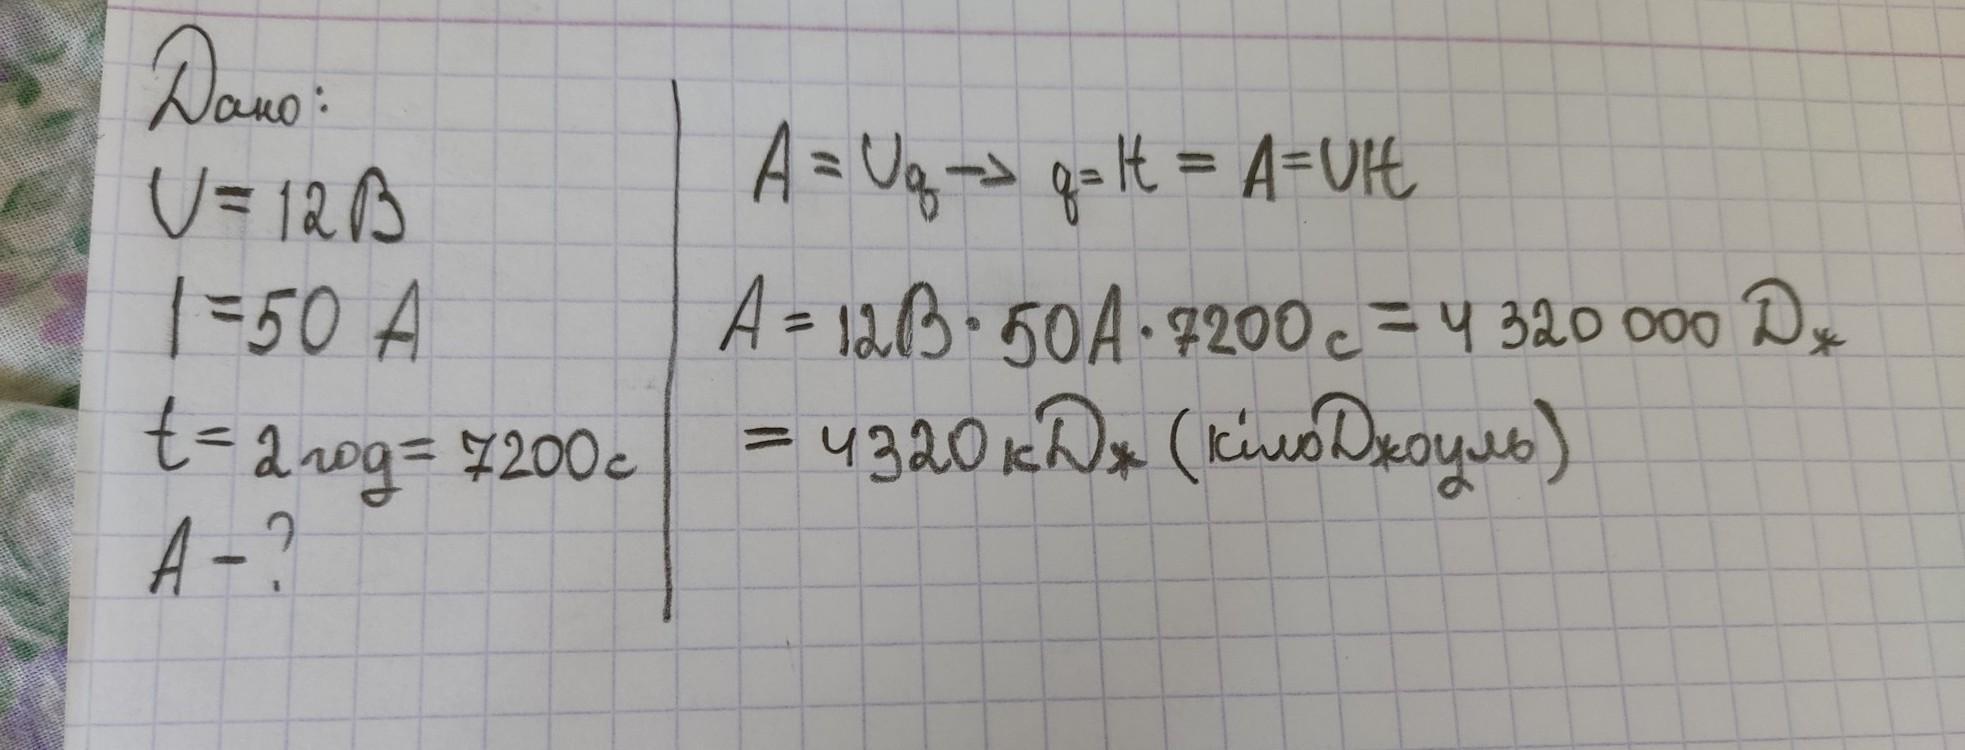 Дано:
U = 12 В
I = 50 А
t = 2 год = 7200 с
A - ?
A = Uq → q = It = A = UIt
A = 12 В · 50 А · 7200 с = 4 320 000 Дж
= 4320 кДж (кілоДжоуль)